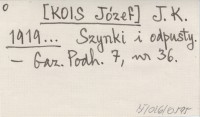 [KOIS Józef] J. K.
1919... Szynki i odpusty.
– Gaz. Podh. 7, nr 36.